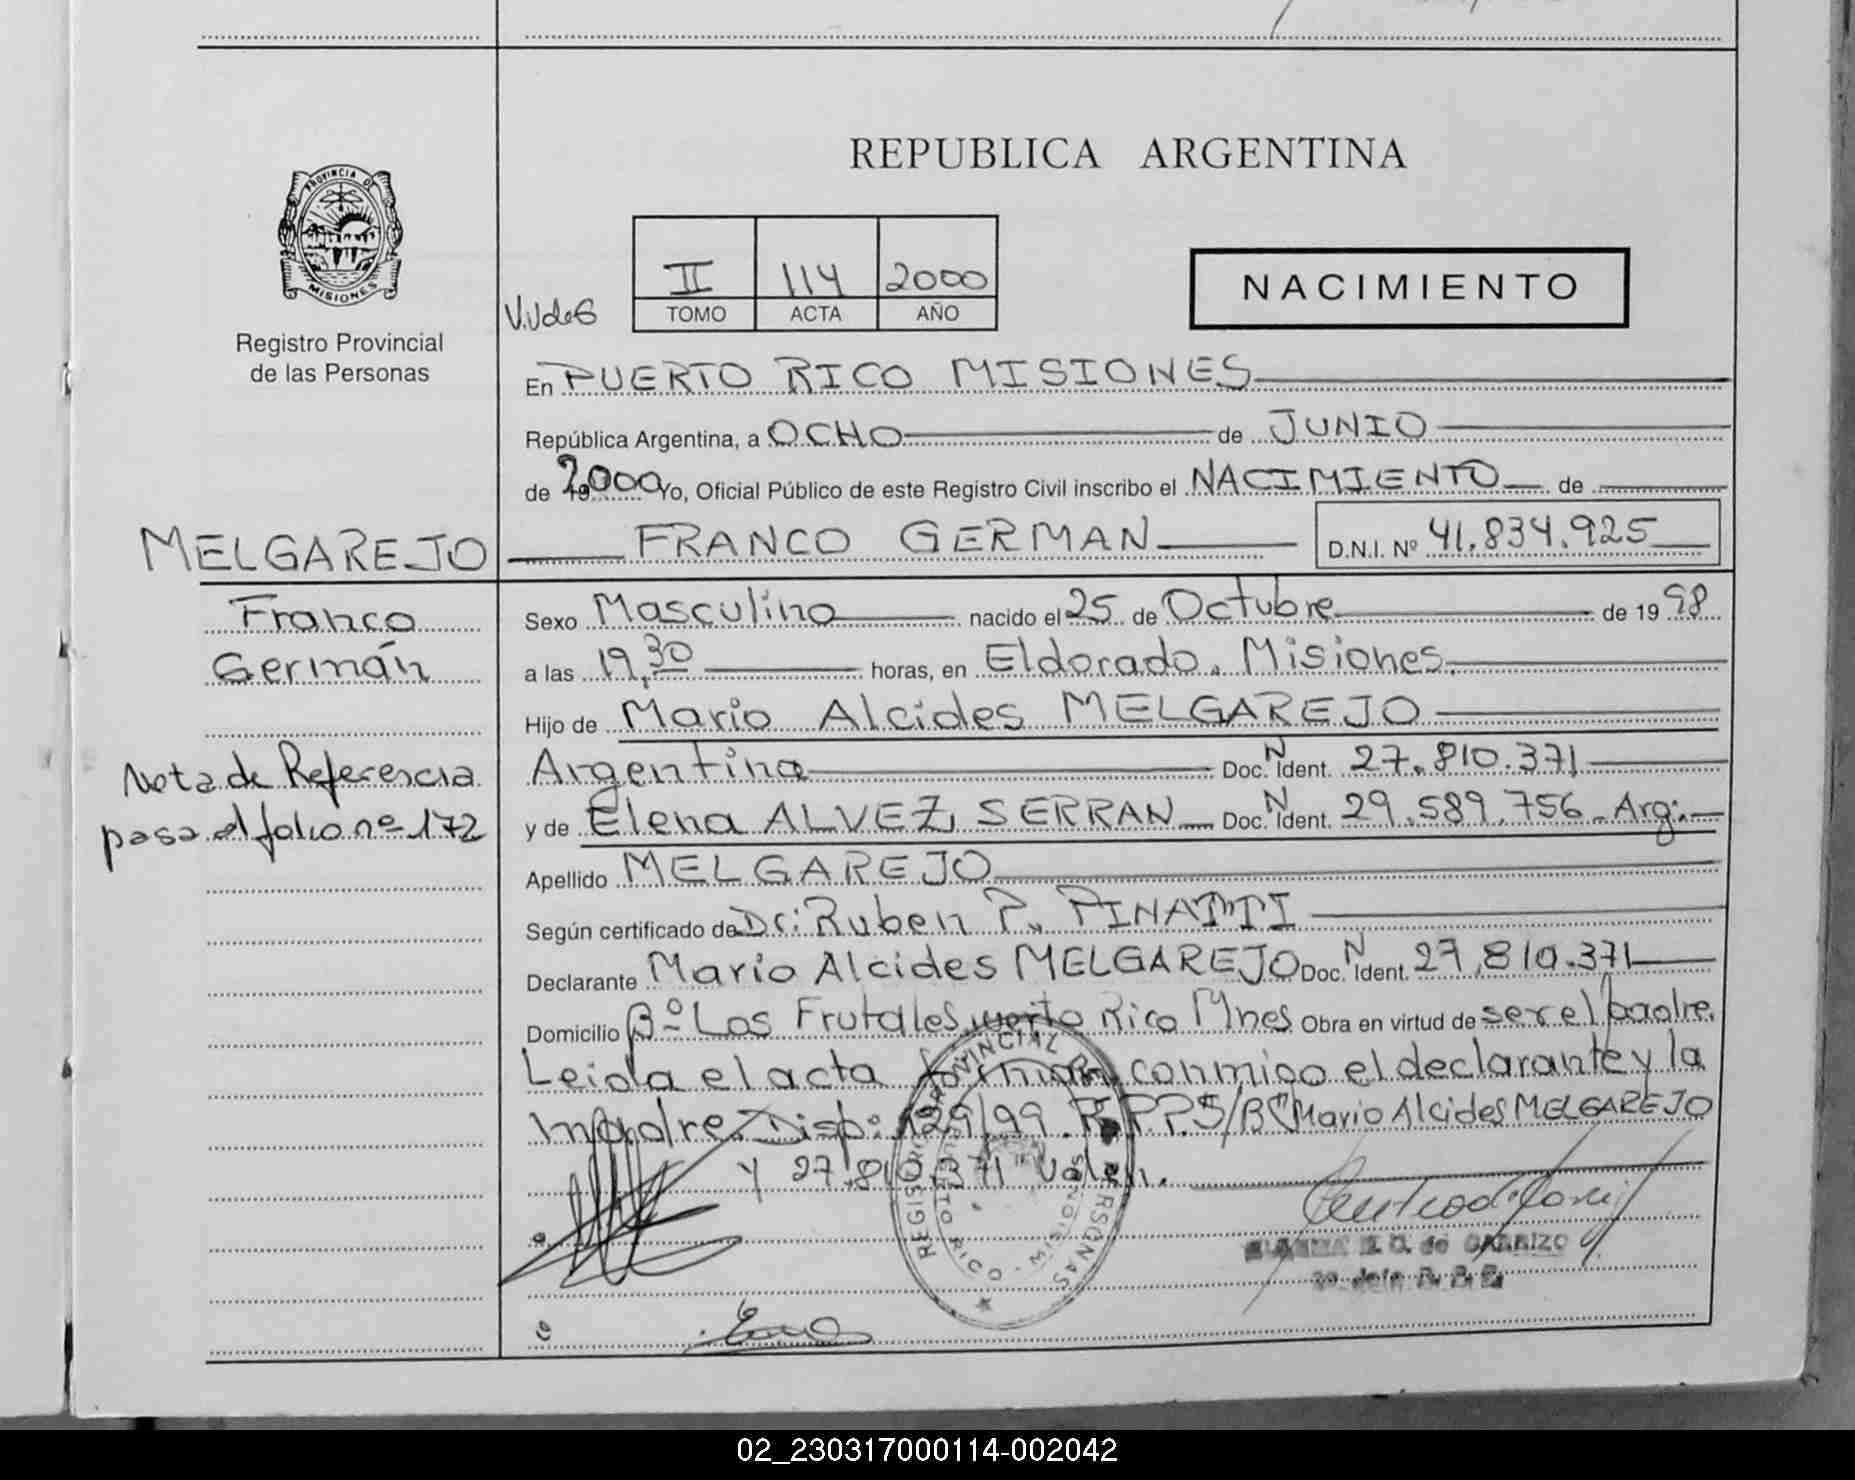 REPUBLICA ARGENTINA
PROVINCIA DE
MISIONES
Registro Provincial
de las Personas
II 114 2000
TOMO ACTA AÑO
NACIMIENTO
En PUERTO RICO MISIONES
República Argentina, a OCHO de JUNIO
de 2000 Yo, Oficial Público de este Registro Civil inscribo el NACIMIENTO de
MELGAREJO FRANCO GERMAN D.N.I. Nº 41.834.925
Franco
Germán
Nota de Referencia
pasa al folio nº 172
Sexo Masculino nacido el 25 de Octubre de 1998
a las 19,30 horas, en Eldorado. Misiones.
Hijo de Mario Alcides MELGAREJO
Argentina Doc. N Ident. 27.810.371
y de Elena ALVEZ SERRAN Doc. N Ident. 29.589.756 Arg.
Apellido MELGAREJO
Según certificado de Dr: Ruben P. PINATTI
Declarante Mario Alcides MELGAREJO Doc. N Ident. 27.810.371
Domicilio Bº Los Frutales Puerto Rico Mnes Obra en virtud de ser el padre.
Leida el acta firman conmigo el declarante y la
madre. Disp: 129/99. R.P.P. S/B "Mario Alcides MELGAREJO
y 27.810.371 Valen.
REGISTRO PROVINCIAL DE PERSONAS
PUERTO RICO - MISIONES
de CARRIZO
02_230317000114-002042